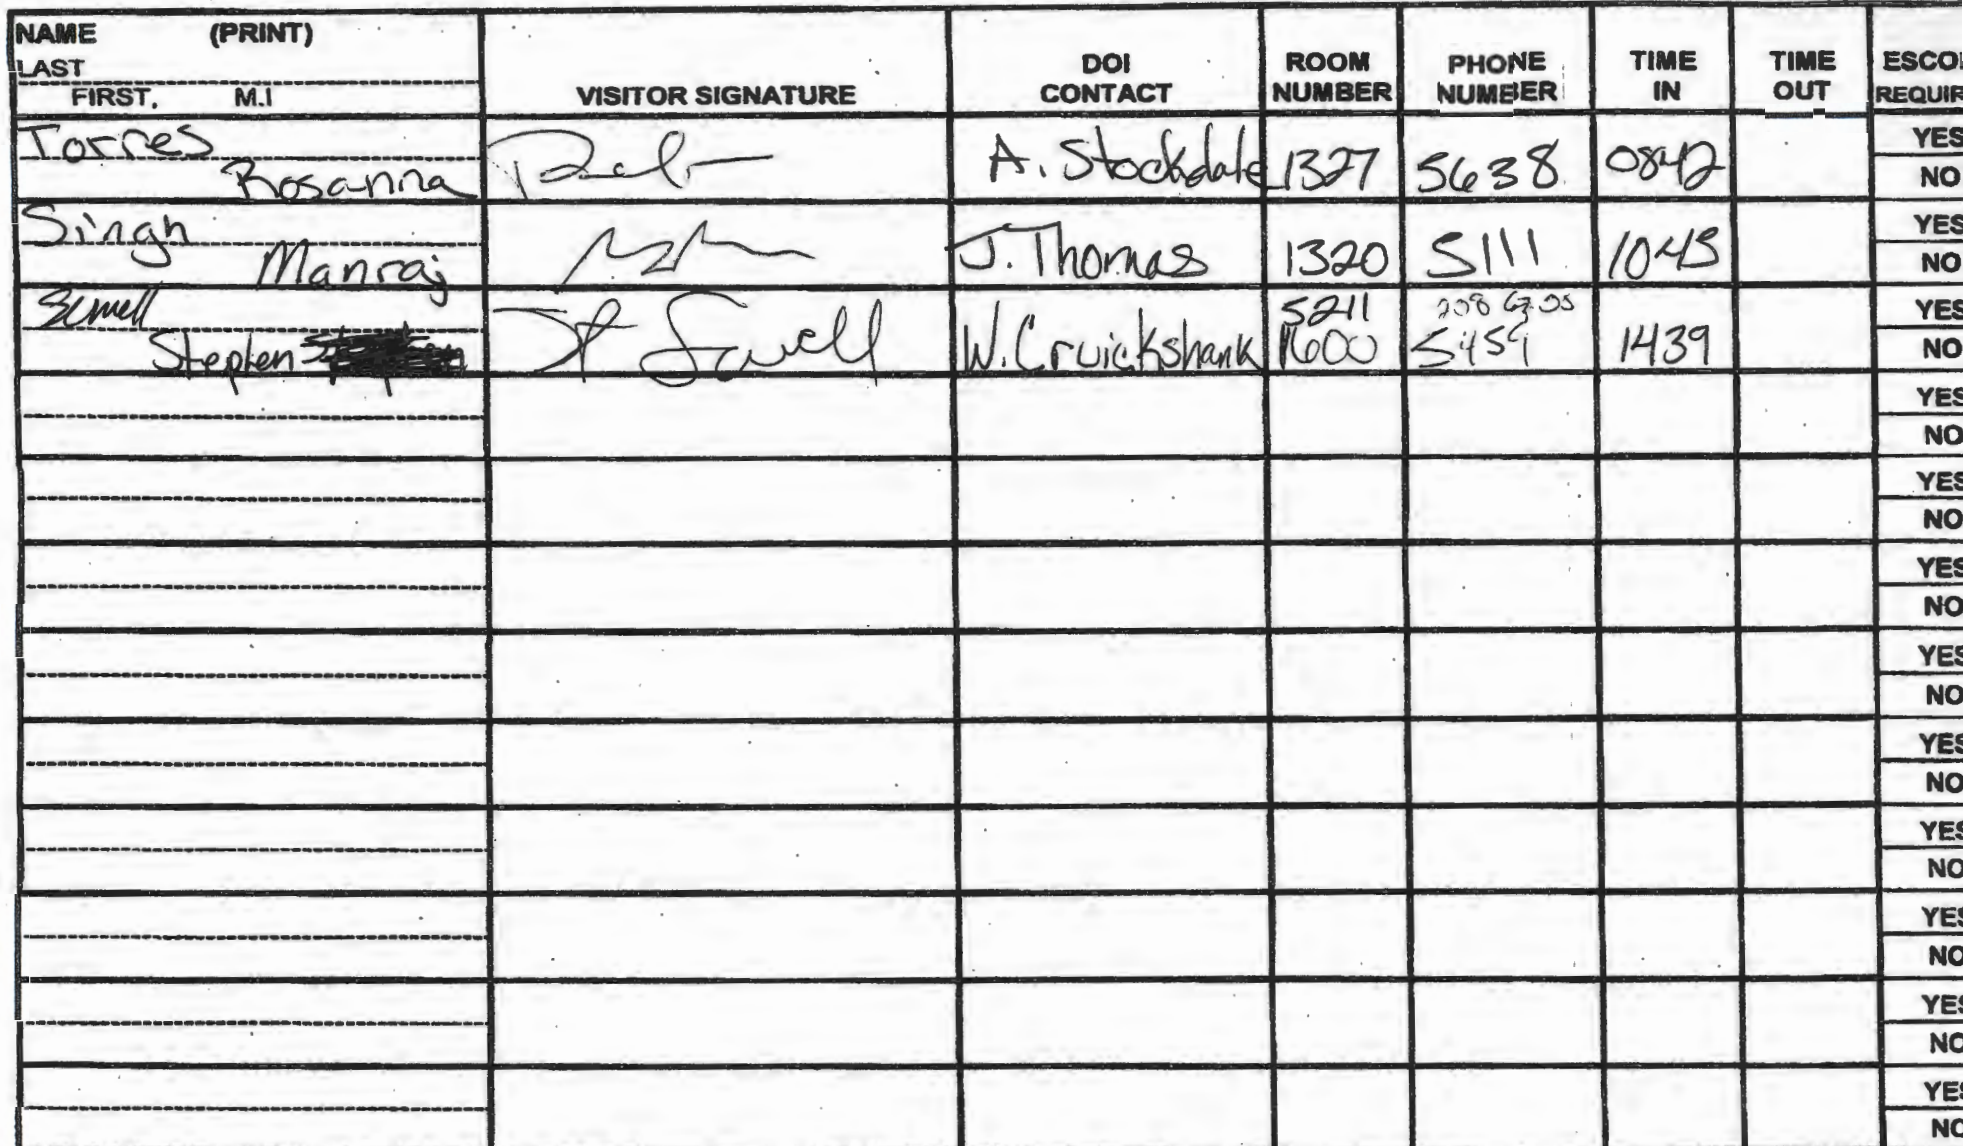 NAME (PRINT)
LAST
FIRST. M.I
VISITOR SIGNATURE
DOI CONTACT
ROOM NUMBER
PHONE NUMBER
TIME IN
TIME OUT
ESCO
REQUIR
Torres
Rosanna
A. Stockdale 1327 5638 0842
YES
NO
Singh
Manraj
J. Thomas 1320 5111 1045
YES
NO
Sewell
Stephen
St Sewell
W. Cruickshank
5211
1600
208
5459
1439
YES
NO
YES
NO
YES
NO
YES
NO
YES
NO
YES
NO
YES
NO
YES
NO
YES
NO
YES
NO